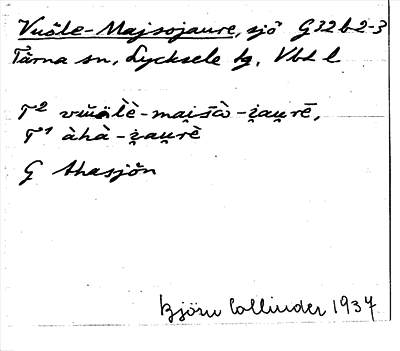 Vuöle-Majsojaure, sjö G32b2-3
Tärna sn, Lycksele tg, Vbt l
T² vŭölè-mai̯sò-ʒau̯rē,
T¹ àhà-ʒau̯rè
G Ahasjön
Björn Collinder 1937